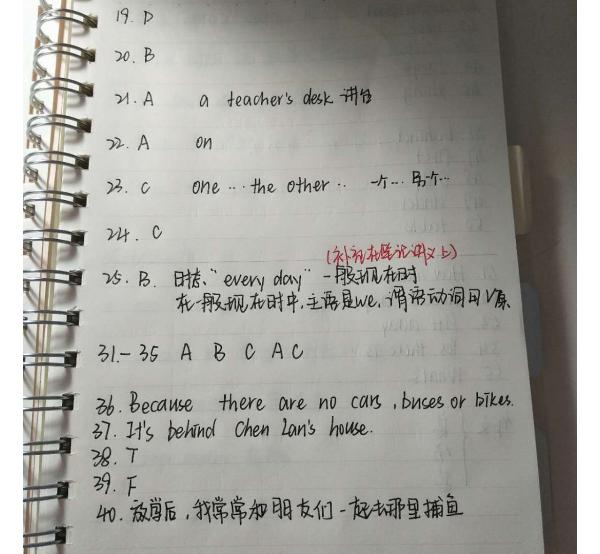 19. D
20. B
21. A a teacher's desk 讲台
22. A on
23. C one … the other … 一个… 另一个…
24. C
(补充在笔记讲义上)
25. B. 时态, "every day" 一般现在时
在一般现在时中, 主语是we, 谓语动词用V原
31.-35 A B C A C
36. Because there are no cars, buses or bikes.
37. It's behind Chen Lan's house.
38. T
39. F
40. 放学后, 我常常和朋友们一起去那里捕鱼